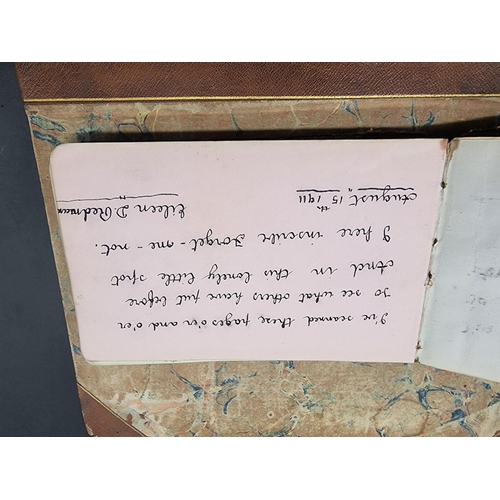 I've scanned these pages o'er and o'er
To see what others have put before
And in this lonely little spot
I here inscribe Forget-me-not.
August 15th 1911
Eileen D. Redman